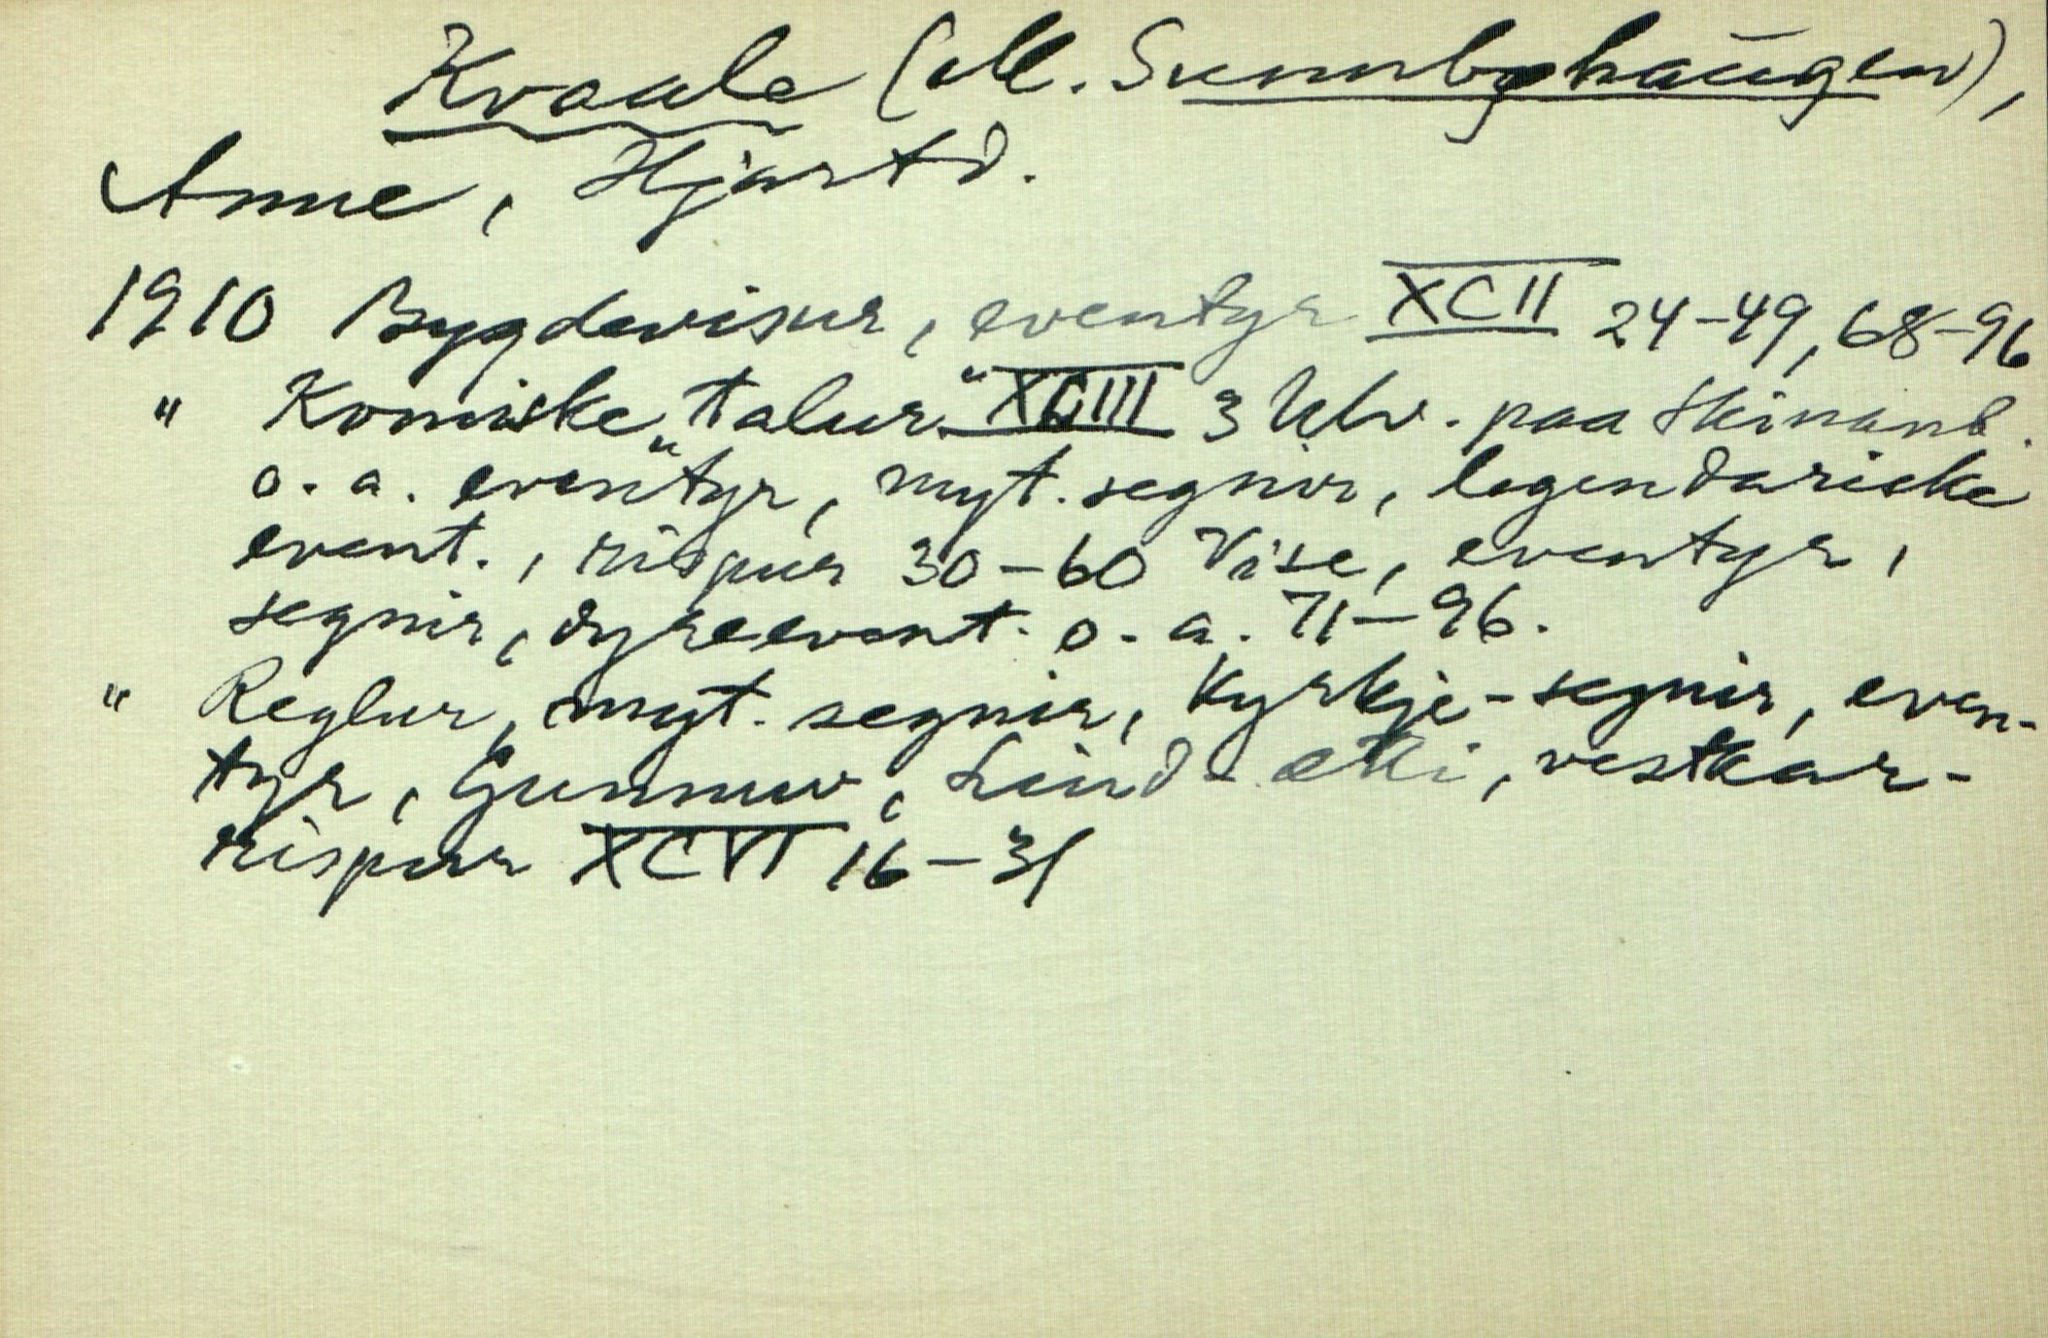 Kvaale (ell. Sunnbøhaugen),
Anne, Hjartd.
1910 Bygdevisur, eventyr XCII 24-49, 68-96
" Komiske „talur" XCIII 3 Ulv. paa Skinanb.
o. a. eventyr, myt. segnir, legendariske
event., rispur 30-60 Vise, eventyr,
segnir, dyreevent. o. a. 71-96.
" Reglur, myt. segnir, kyrkje-segnir, even-
tyr, Gunnuv, Lind-ætti, vestkar-
rispur XCVI 16-31